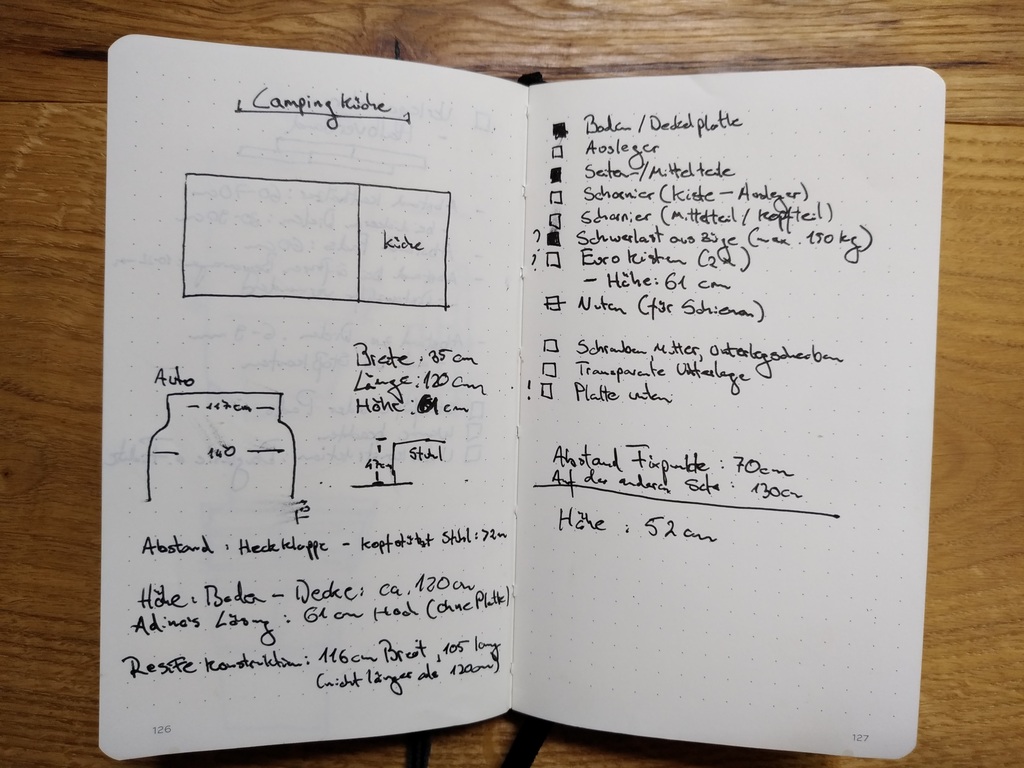 Camping Küche
Küche
Breite : 35 cm
Länge : 120 cm
Höhe : 61 cm
Auto
- 117cm -
- 140 -
47cm
Stuhl
Abstand : Heckklappe - Kopfstütze Stuhl : 72 cm
Höhe : Boden - Decke : ca. 120 cm
Adina's Lösung : 61 cm Hoch (ohne Platte)
Konstruktion : 116 cm Breit, 105 lang
(nicht länger als 120cm)
126
Boden / Deckelplatte
Ausleger
Seiten-/Mittelteile
Scharnier (Kiste - Ausleger)
Scharnier (Mittelteil / Kopfteil)
? Schwerlastauszüge (max. 150 kg)
! Eurokisten (2x)
- Höhe: 61 cm
Nuten (für Schienen)
Schrauben, Mutter, Unterlegscheiben
Transparente Unterlage
! Platte unten
Abstand Fixpunkte : 70cm
Auf der anderen Seite : 130cm
Höhe : 52 cm
127